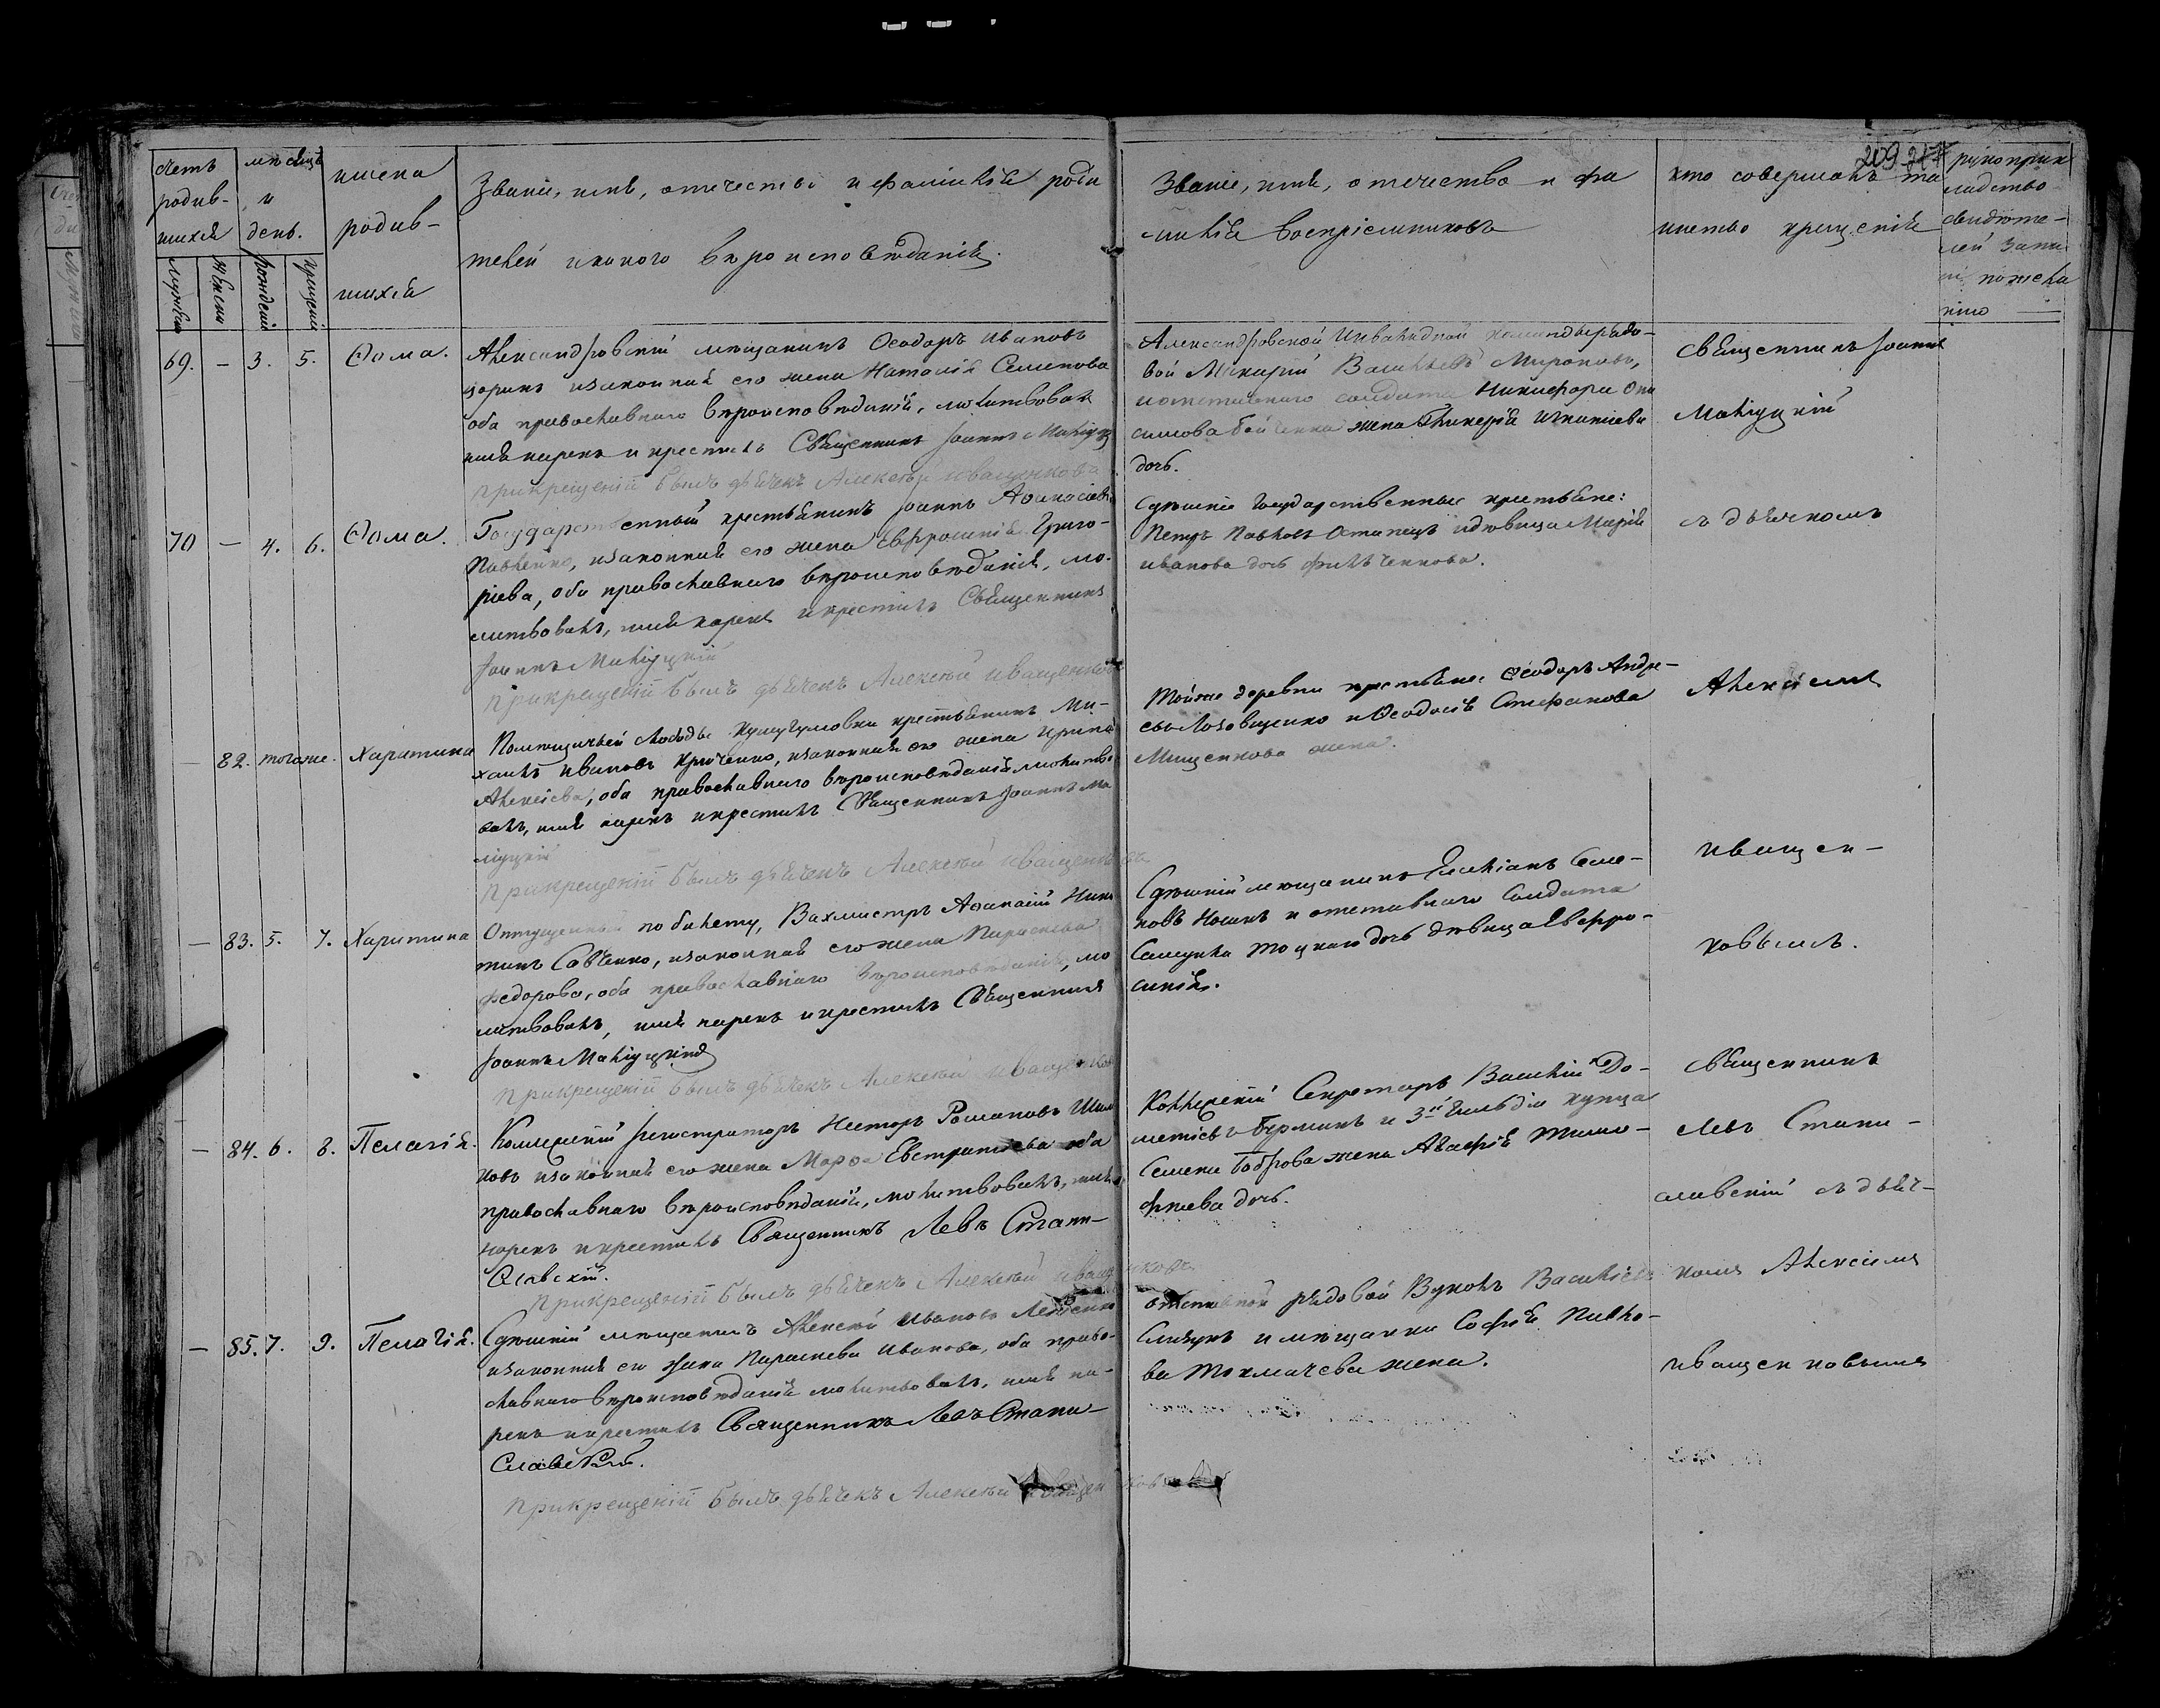 209
счетъ родив-шихся
мужеска
женска
мѣсяцъ и день.
рожденія
крещенія
имена родив-шихся
Званіе, имя, отечество и фамилія роди
телей и какого вѣроисповѣданія.
Званіе, имя, отечество и фа
милія воспріемниковъ
кто совершалъ та
инство крещенія
рукоприк
ладство
свидѣте-
лей записи
по жела
нію
69. — 3. 5. Ѳома.
Александровскій мѣщанинъ Ѳеодоръ Ивановъ
изаконная его жена Наталія Семенова
оба православнаго вѣроисповѣданія, молитвовалъ
имя нарекъ и крестилъ Священникъ Іоаннъ Малицкій
при крещеніи былъ дьячекъ Алексѣй Иващенковъ
Александровской Инвалидной команды рядо-
вой Макарій Васильевъ Мироновъ,
солдата Никифора Они
симова жена Гликерія Игнатіева
дочь.
Священникъ Іоаннъ
Малицкій
70 — 4. 6. Ѳома.
Государственный крестьянинъ Іоаннъ Аѳанасіевъ
Павленко, изаконная его жена Евфросинія Григо-
ріева, оба православнаго вѣроисповѣданія, мо-
литвовалъ, имя нарекъ и крестилъ Священникъ
Іоаннъ Малицкій
при крещеніи былъ дьячекъ Алексѣй Иващенковъ
Здѣшніе государственные крестьяне:
Петръ Павловъ Остапецъ и дѣвица Марія
Иванова дочь Фильченкова.
съ дьячкомъ
— 82. тогоже. Харитина
Помѣщичьей слободы Кушугумовки крестьянинъ Ми-
хаилъ Ивановъ Крученко, изаконная его жена Ирина
Алексіева, оба православнаго вѣроисповѣданія молитво
валъ, имя нарекъ и крестилъ Священникъ Іоаннъ Ма
лицкій
при крещеніи былъ дьячекъ Алексѣй Иващенковъ
Тойже деревни крестьяне: Ѳеодоръ Андре-
евъ и Ѳеодосія Стефанова
Мищенкова жена.
Алексіемъ
— 83. 5. 7. Харитина
Отпущенный по билету, Вахмистръ Аѳанасій Ники
тинъ Савченко, изаконная его жена Параскева
Федорова, оба православнаго вѣроисповѣданія, мо
литвовалъ, имя нарекъ и крестилъ Священникъ
Іоаннъ Малицкій
при крещеніи былъ дьячекъ Алексѣй Иващенковъ
Здѣшній мѣщанинъ Емиліанъ Семе-
новъ Носикъ и отставнаго Солдата
Самуила Тоцкаго дочь дѣвица Евфро-
синія.
Иващен-
ковымъ.
— 84. 6. 8. Пелагія.
Колежскій Регистраторъ Несторъ Романовъ
изаконная его жена Марѳа Евстратіева оба
православнаго вѣроисповѣданія, молитвовалъ, имя
нарекъ и крестилъ Священникъ Левъ Стани-
славскій.
при крещеніи былъ дьячекъ Алексѣй Иващенковъ
Коллежскій Секретарь Василій До-
метіевъ и 3й гильдіи купца
Семена Боброва жена Агафія Тимо-
фѣева дочь.
Священникъ
Левъ Стани-
славскій съ дьяч-
— 85. 7. 9. Пелагія.
Здѣшній мѣщанинъ Алексѣй Ивановъ
изаконная его жена Параскева Иванова, оба право-
славнаго вѣроисповѣданія молитвовалъ, имя на-
рекъ и крестилъ Священникъ Левъ Стани-
славскій.
при крещеніи былъ дьячекъ Алексѣй Иващенковъ
Отставной рядовой Вуколъ Васильевъ
и мѣщанка Софія Павло-
ва Толмачева жена.
комъ Алексіемъ
Иващенковымъ